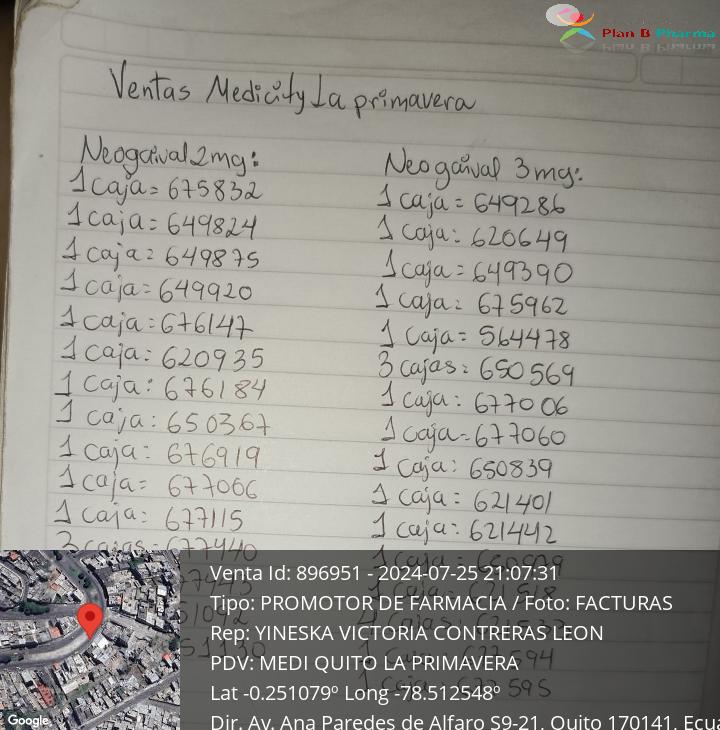 Plan B Pharma
Ventas Medicity La primavera
Neogaival 2mg:
1 caja= 675832
1 caja= 649824
1 caja= 649875
1 caja= 649920
1 caja: 676147
1 caja: 620935
1 caja: 676184
1 caja: 650367
1 caja: 676919
1 caja= 677066
1 caja: 677115
3 cajas: 677440
Neogaival 3mg:
1 caja= 649286
1 caja: 620649
1 caja= 649390
1 caja: 675962
1 caja= 564478
3 cajas: 650569
1 caja: 677006
1 caja= 677060
1 caja: 650839
1 caja: 621401
1 caja: 621442
1 caja:
Venta Id: 896951 - 2024-07-25 21:07:31
Tipo: PROMOTOR DE FARMACIA / Foto: FACTURAS
Rep: YINESKA VICTORIA CONTRERAS LEON
PDV: MEDI QUITO LA PRIMAVERA
Lat -0.251079º Long -78.512548º
Dir. Av. Ana Paredes de Alfaro S9-21, Quito 170141, Ecua
Google